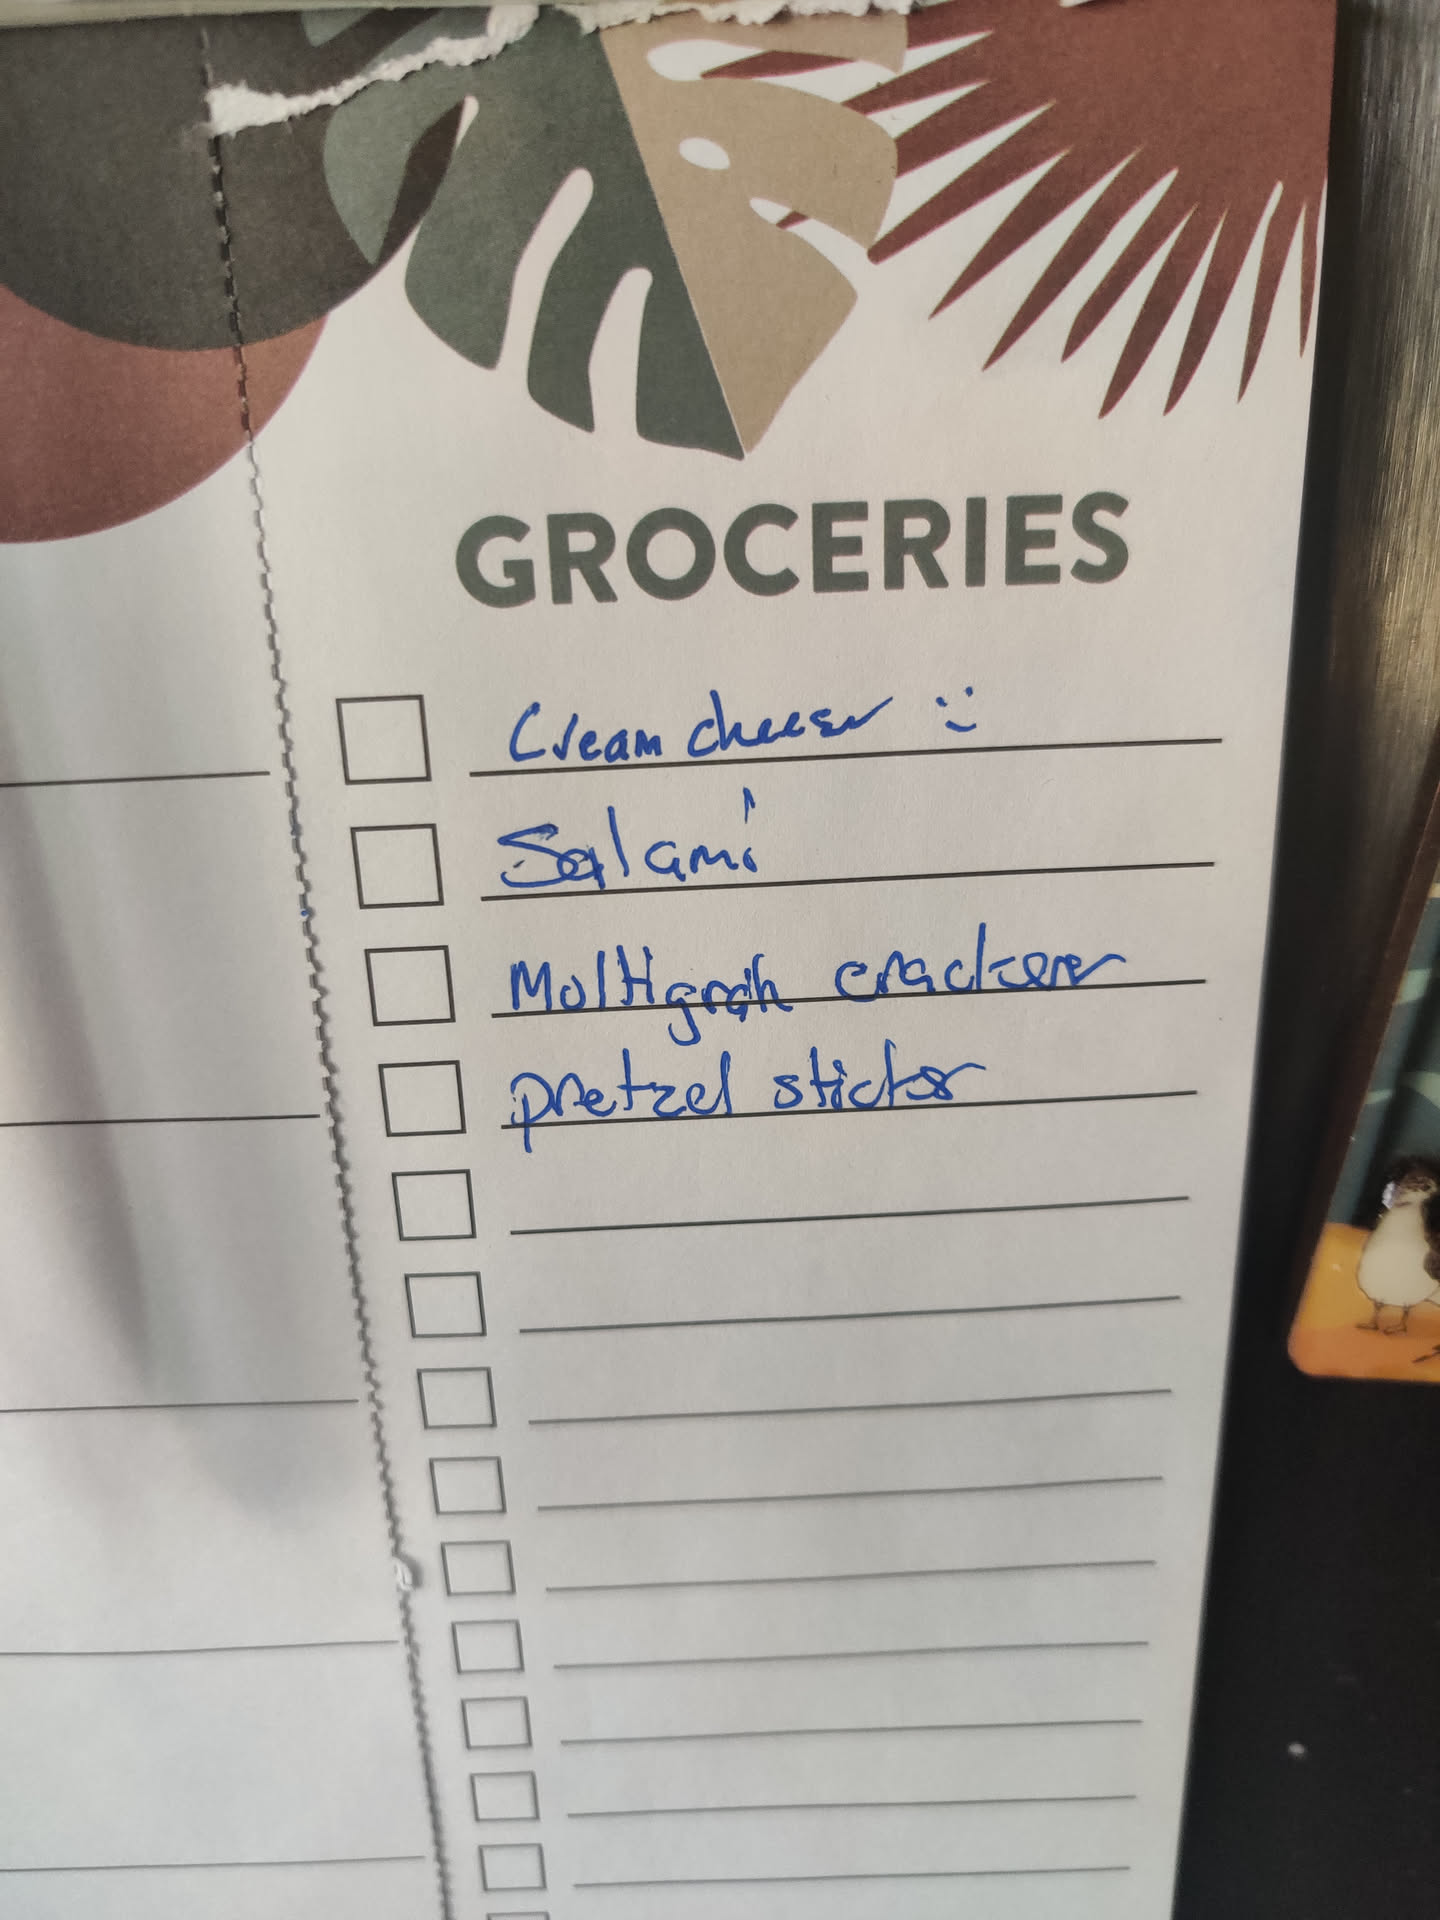 GROCERIES
Cream cheese :)
Salami
Moltigrain crackers
pretzel sticks